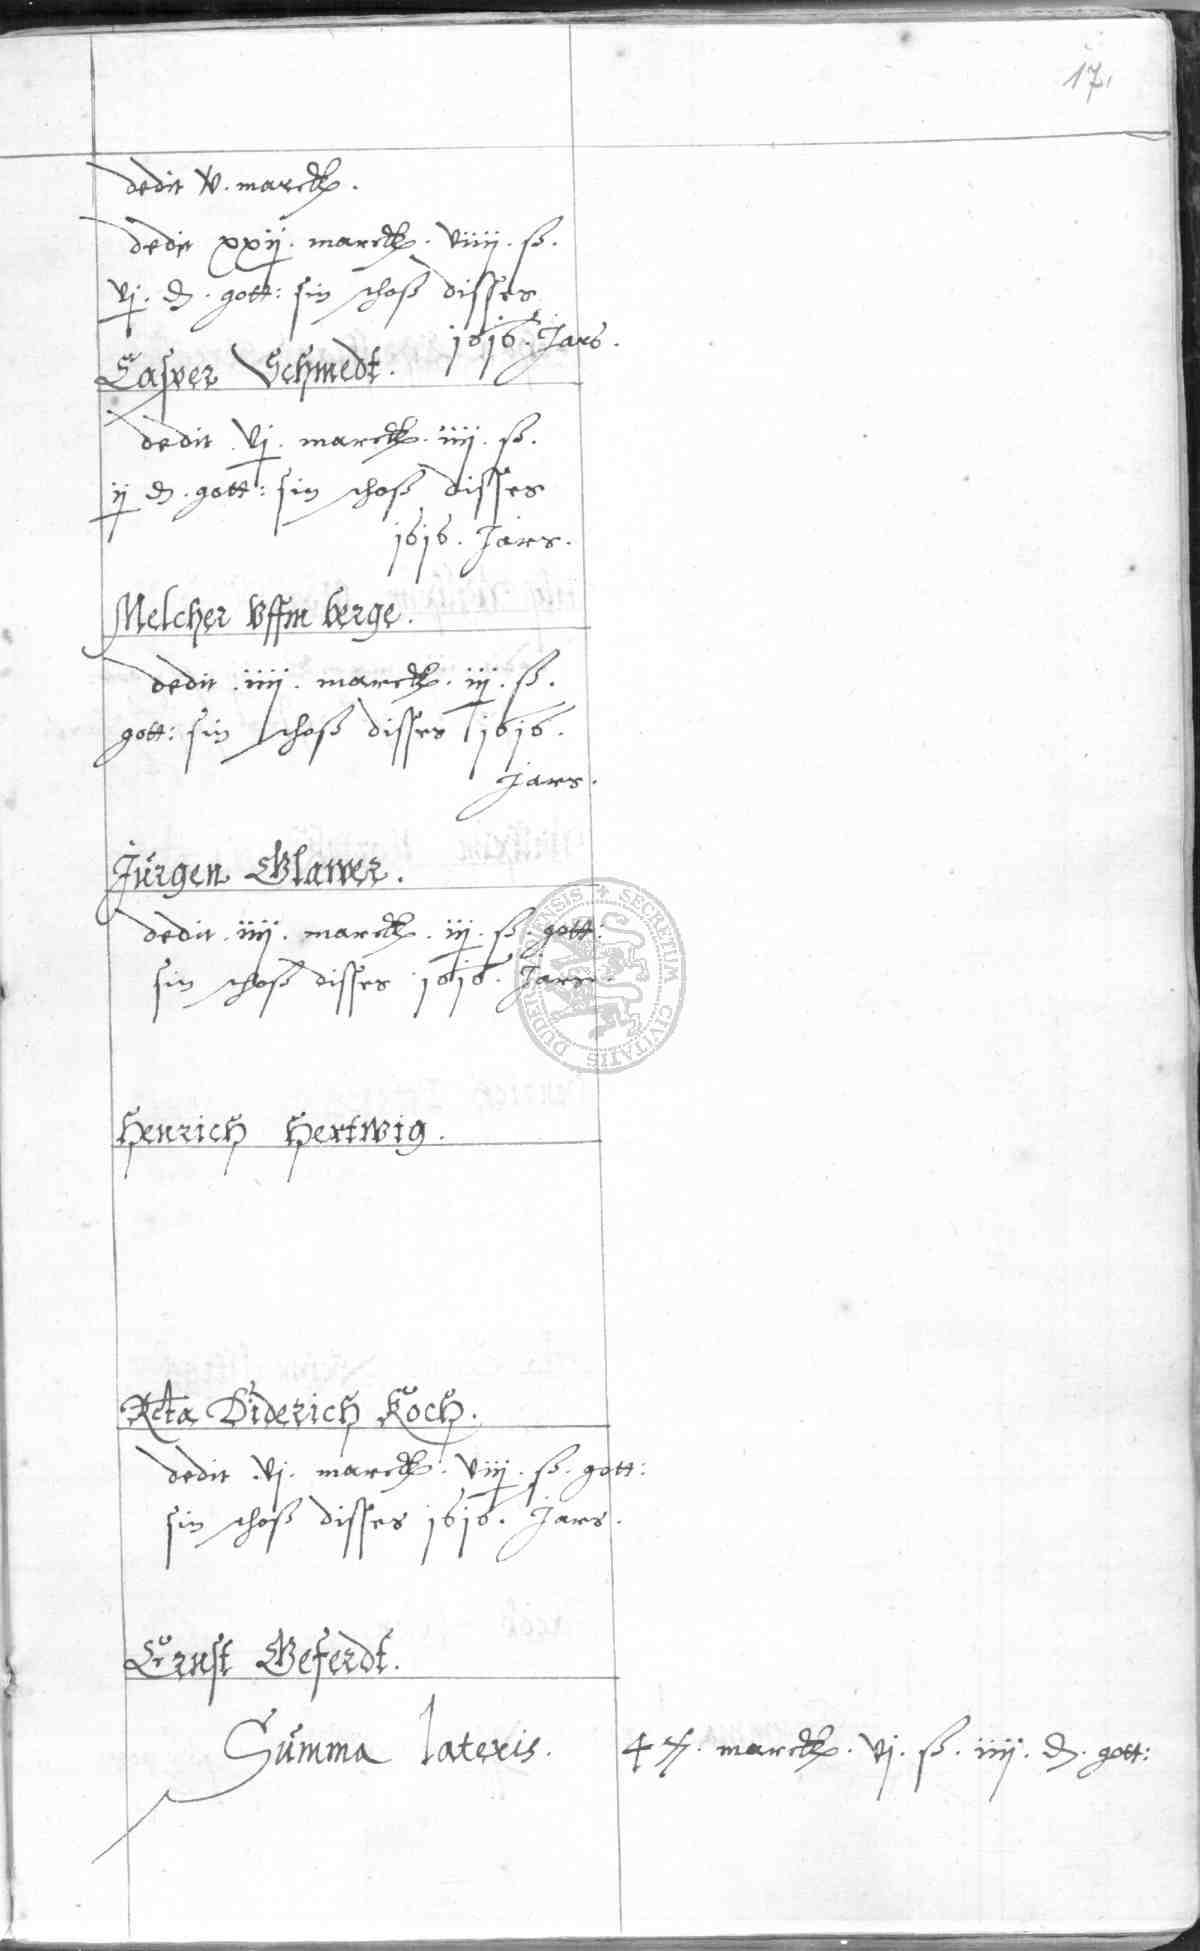 17.
dedit v. marck.
dedit xxij. marck. viiij. ß.
vj. d. gott: sin schoß disses
1616. Jars.
Casper Schmedt.
dedit vj. marck. iiij. ß.
ij d. gott: sin schoß disses
1616. Jars.
Melcher Vffm berge.
dedit iiij. marck. iij. ß.
gott: sin schoß disses 1616.
Jars.
Jürgen Glawer.
dedit iiij. marck. iij. ß gott:
sin schoß disses 1616. Jars.
Henrich Hertwig.
Diderich Koch.
dedit vj. marck. viij. ß. gott:
sin schoß disses 1616. Jars.
Ernst Geferdt.
Summa lateris. 47. marck. vj. ß. iiij. d. gott:
SECRETUM CIVITATIS